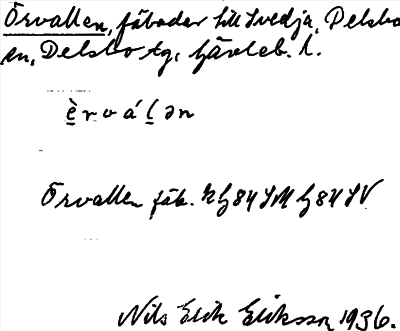 Örvallen, fäbodar till Svedja, Delsbo
sn, Delsbo tg, Gävleb. l.
è r v á l ə n
Örvallen fäb.
Nils Erik Eriksson 1936.